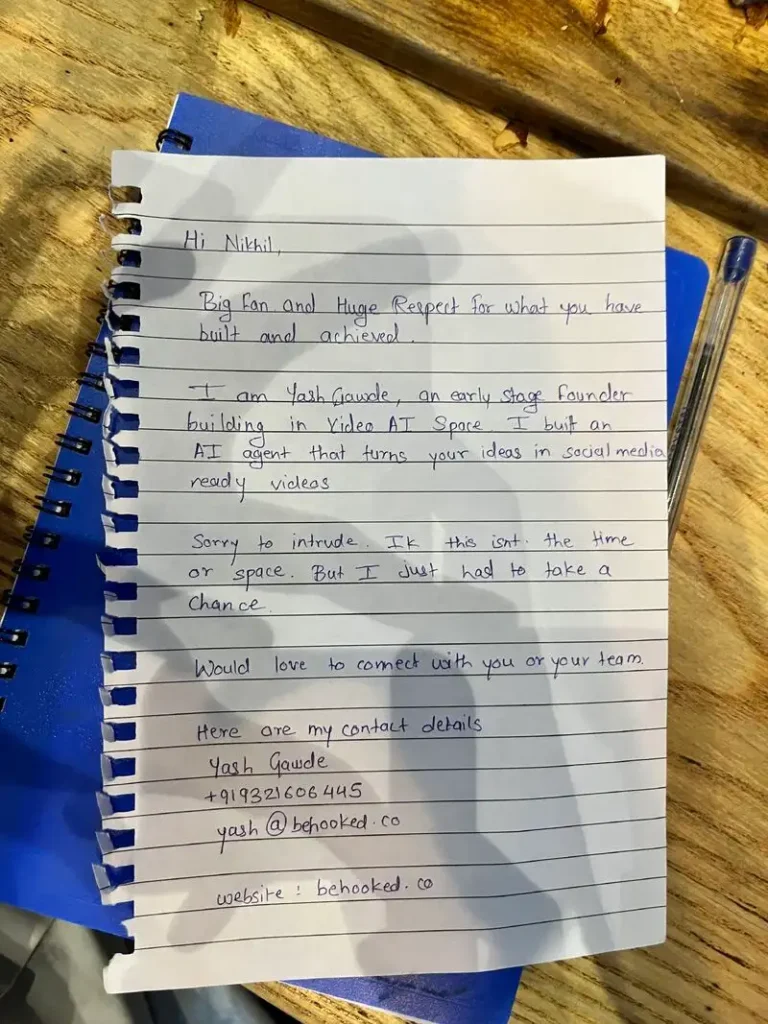 Hi Nikhil,
Big fan and Huge Respect for what you have
built and achieved.
I am Yash Gawde, an early stage founder
building in Video AI Space. I built an
AI agent that turns your ideas in social media
ready videos
Sorry to intrude. IK this isnt. the time
or space. But I just had to take a
Chance.
Would love to connect with you or your team.
Here are my contact details
Yash Gawde
+919321606445
yash@behooked.co
website : behooked.co